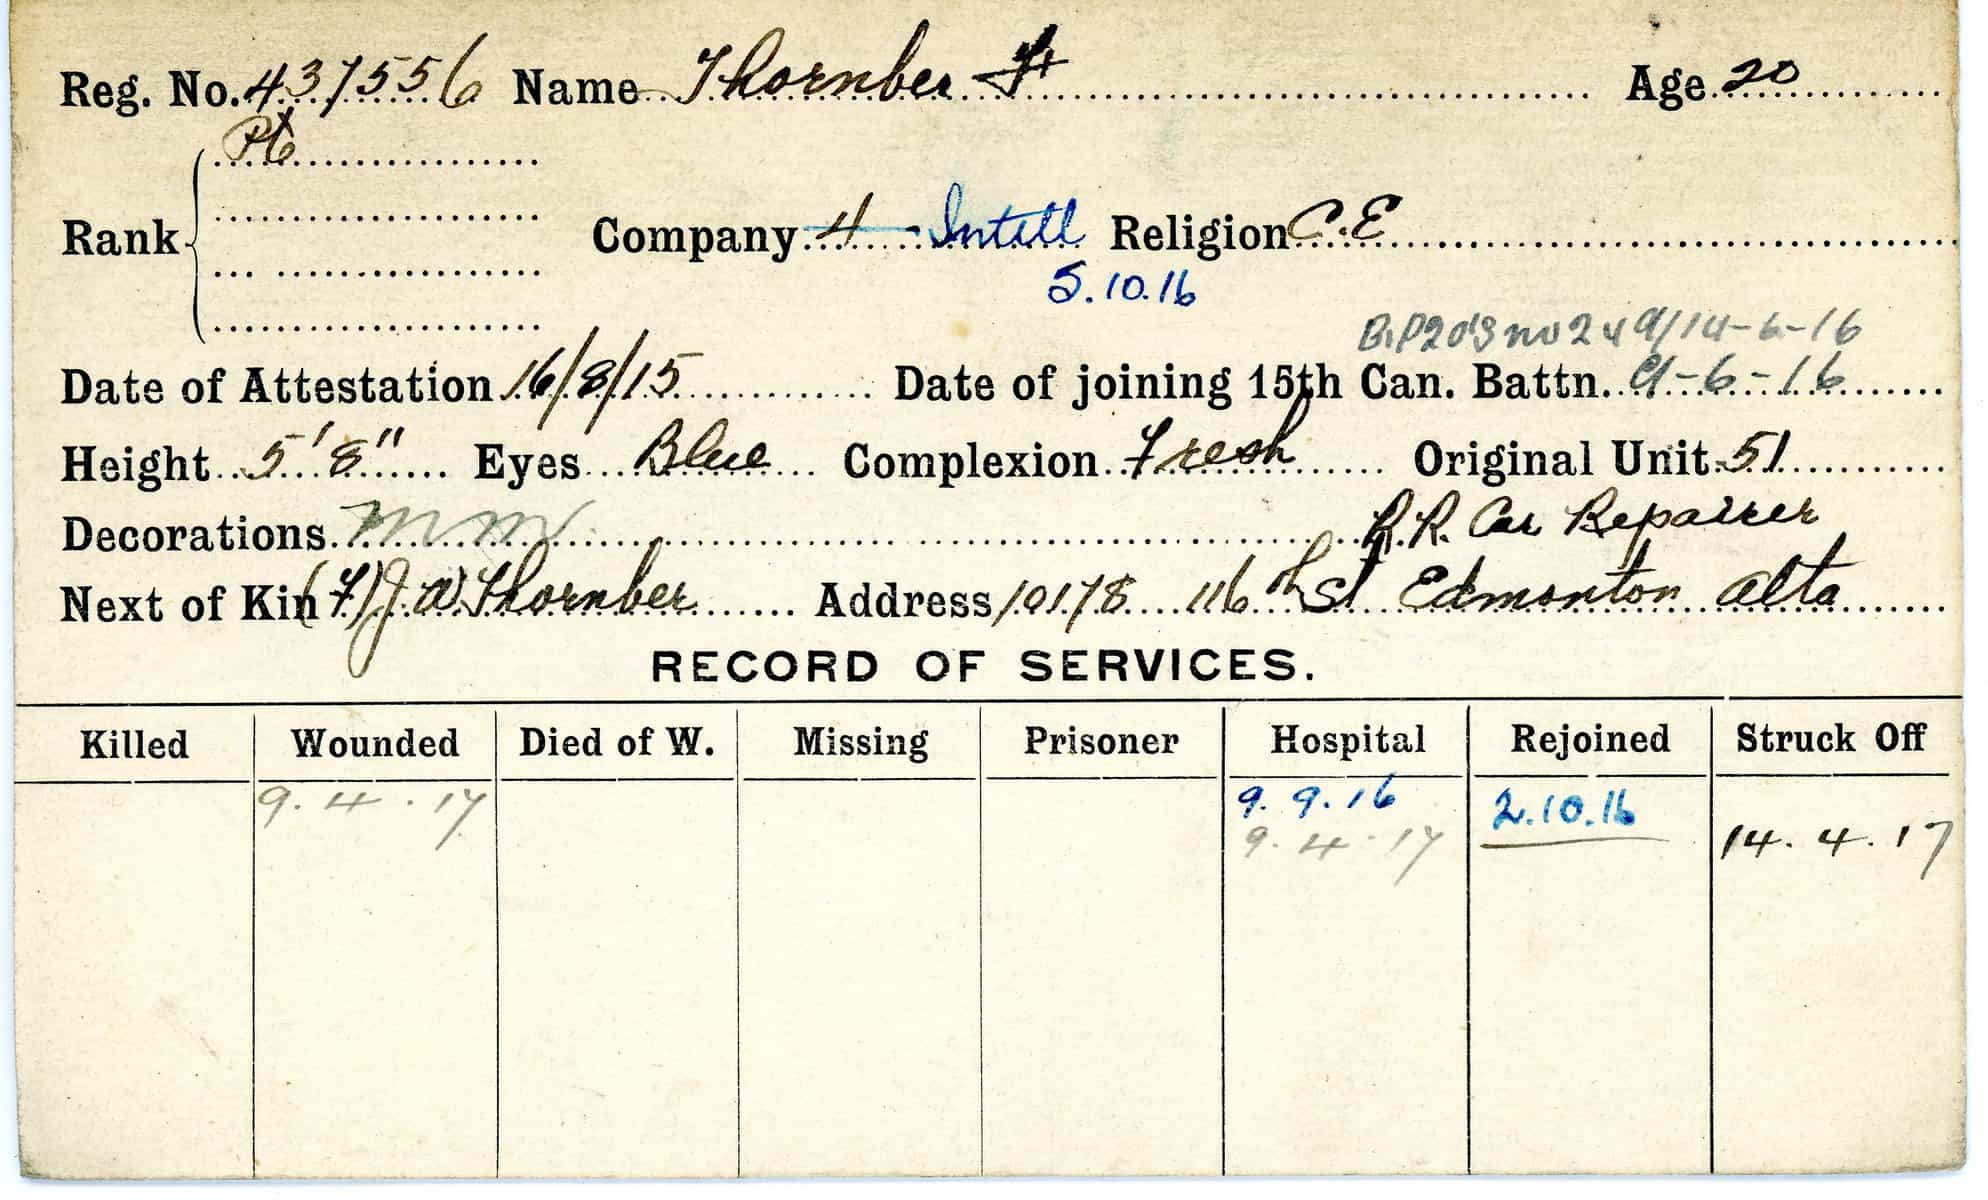 Reg. No. 437556 Name Thornber Age 20
Pte
Rank Company 4 Intell Religion C.E
5.10.16
14-6-16
Date of Attestation 16/8/15 Date of joining 15th Can. Battn. 9-6-16
Height 5'8" Eyes Blue Complexion Fresh Original Unit 51
Decorations MM R.R. Car Repairer
Next of Kin (F) J.W. Thornber Address 10178 116th St Edmonton Alta
RECORD OF SERVICES.
Killed Wounded Died of W. Missing Prisoner Hospital Rejoined Struck Off
9.4.17 9.9.16 2.10.16
9.4.17 14.4.17